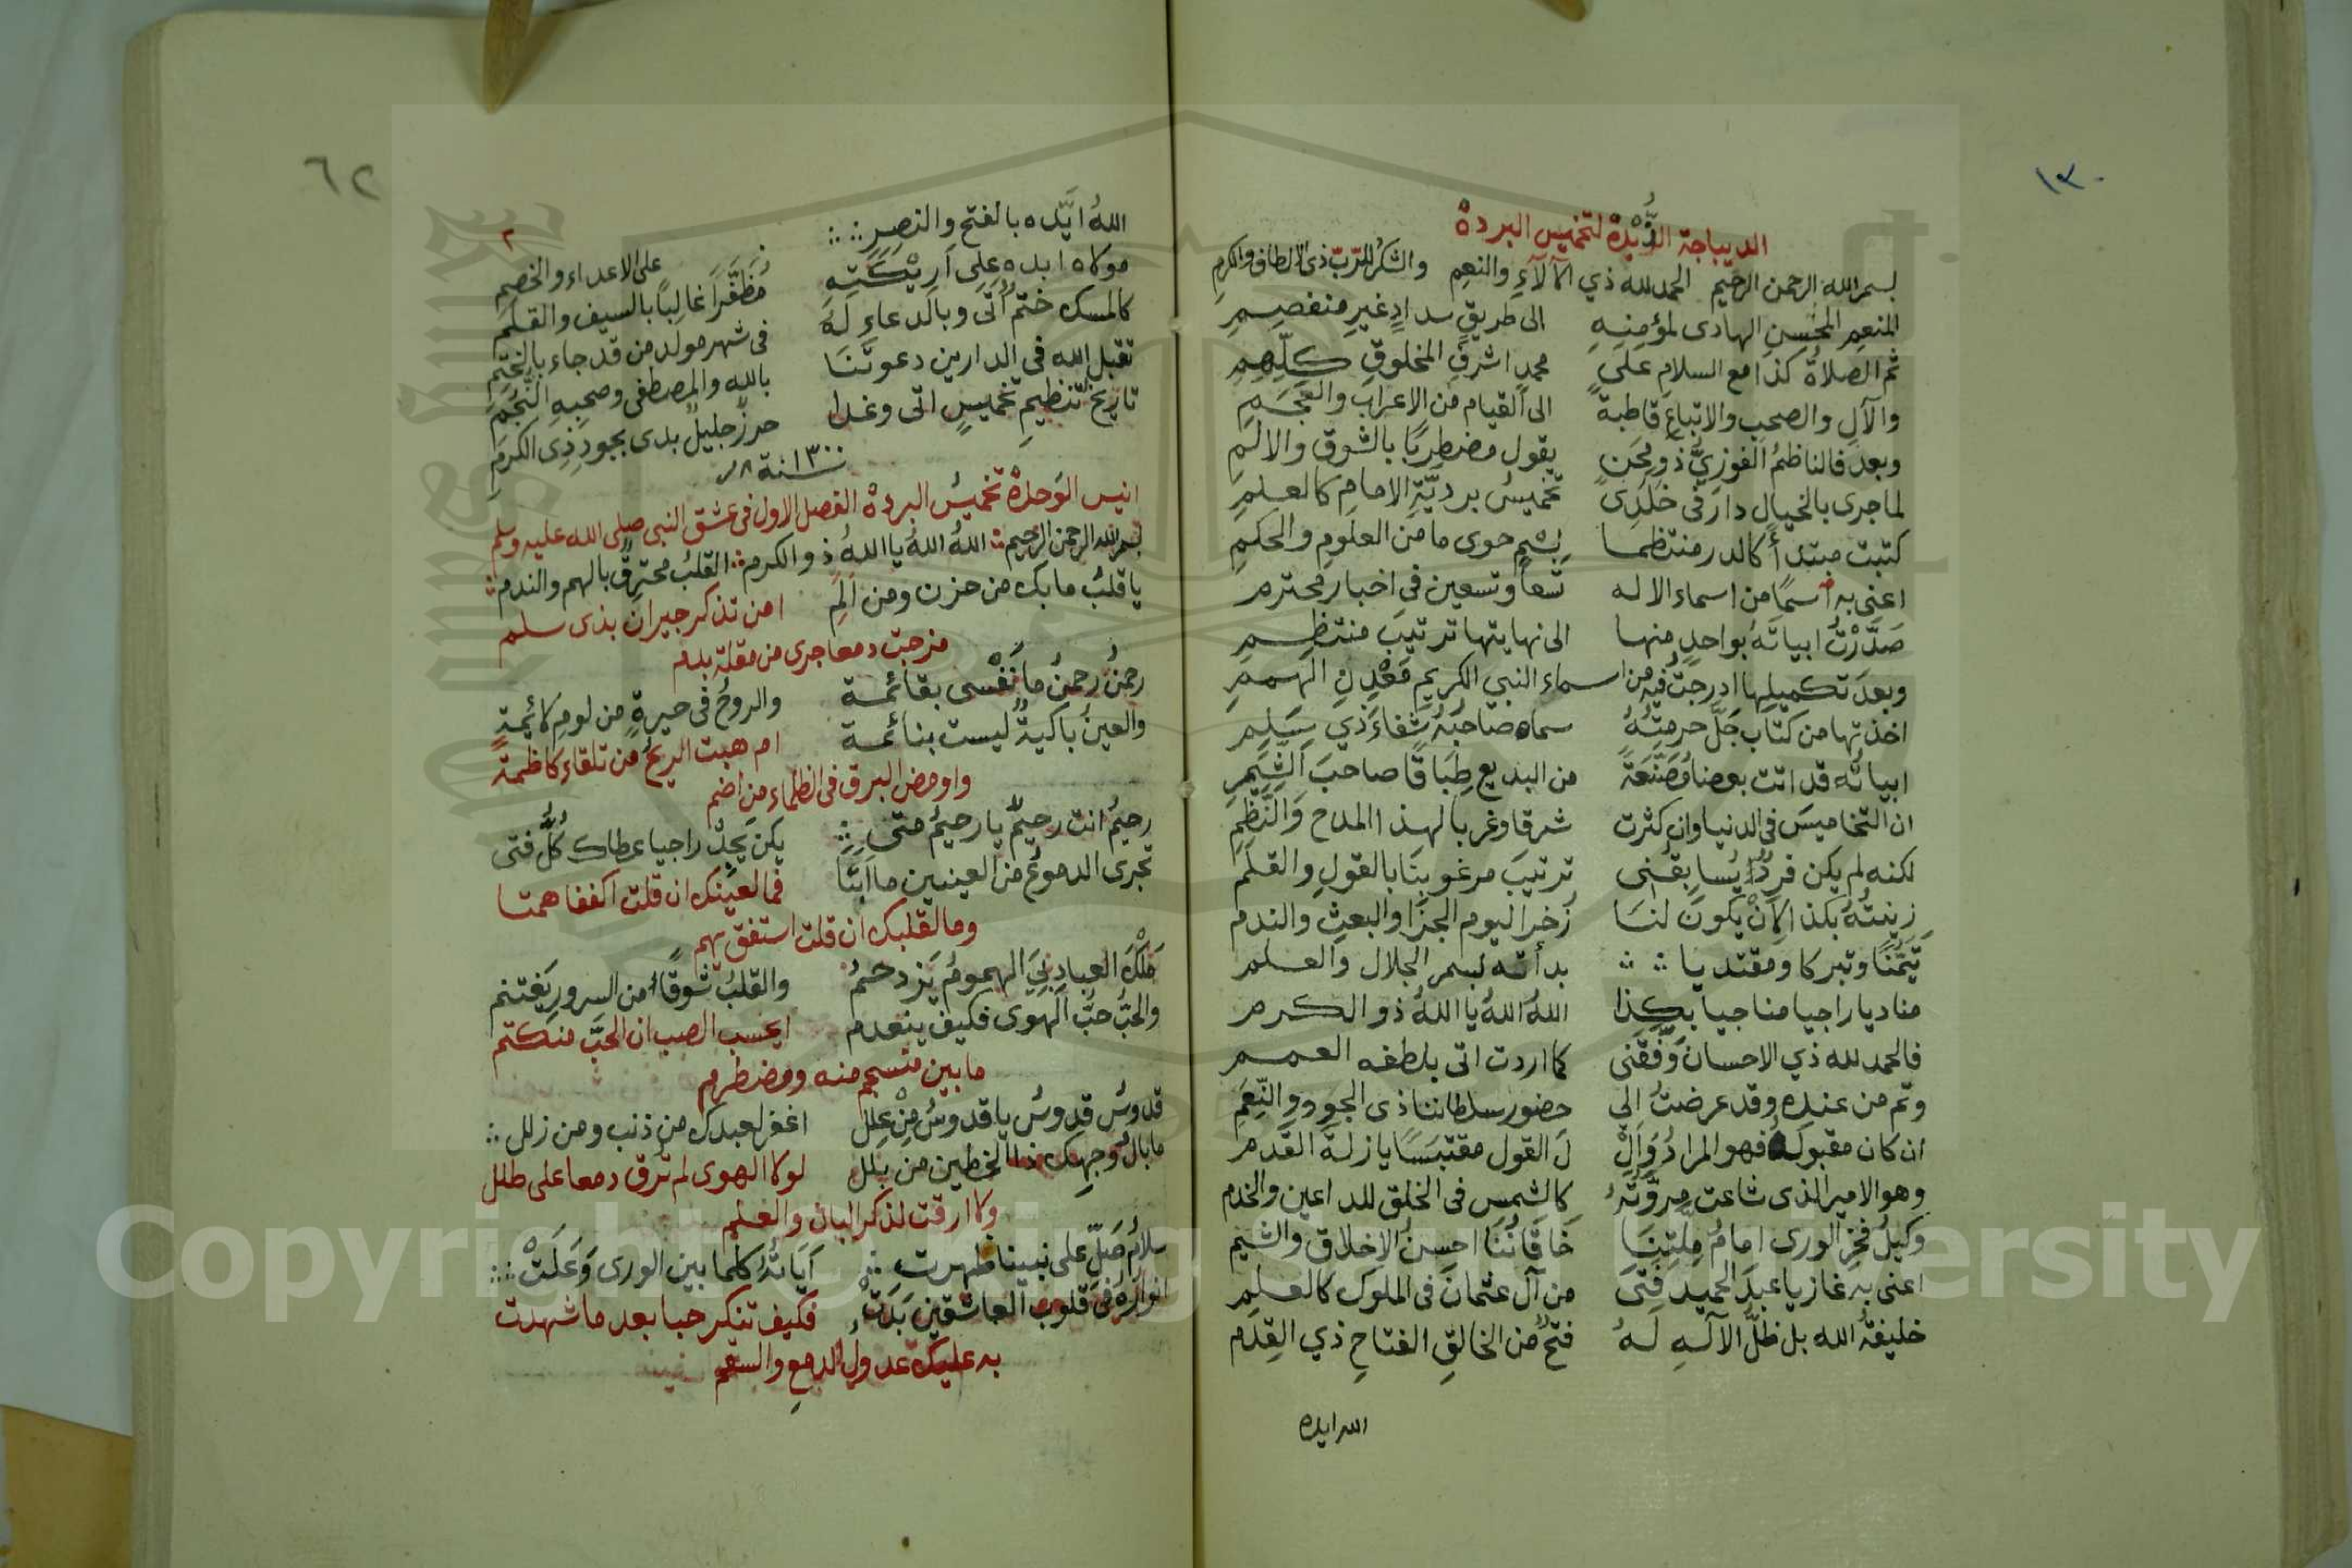 ١٣٠
الديباجة الزُّبْدة لتخميس البردة
بسم الله الرحمن الرحيم الحمد لله ذي الآلآءِ والنعِمِ والشكر للرّبّ ذى الالطاف والكرمِ
المنعِمِ المحْسنِ الهادى لمؤمِنِهِ الى طريقٍ سدادٍ غيرِ منفصِمِ
ثم الصلاةُ كذا مع السلامِ على محمدٍ اشرفِ المخلوقِ كلِّهِمِ
والآلِ والصحبِ والاتباعِ قاطبةً الى القيام من الاعرابِ والعَجَمِ
وبعد فالناظمُ الفوزيُّ ذو مِحَنٍ يقول مضطربًا بالشوق والالَمِ
لما جرى بالخيالِ دارَ فى خَلَدِى تخميسُ برديّةِ الامامِ كالعلمِ
كتبت مبتدأً كالدر منتظما بِسْمٍ حوى ما من العلومِ والحِكمِ
اعنى به اسمًا من اسماء الاله تسعاً وتسعين فى اخبار محترم
صَدَّرْتُ ابياتَهُ بواحدٍ منها الى نهايتها ترتيبَ منتظِمِ
وبعدَ تكميلِها ادرجتُ فيهِ من اسماء النبي الكريمِ مَعْدِنِ الهممِ
اخذتها من كتاب جَلَّ حرمتُهُ سماه صاحبُهُ شِفاءَ ذي سَقَمِ
ابياتُه قد اتت بعضا مُصَنَّعَةً من البديع طِبَاقًا صاحبَ الشِّيَمِ
ان التخاميسَ فى الدنيا وان كثرت شرقا وغربا لهذا المدح وَالنَّظِمِ
لكنه لم يكن فردٌ يُسابِقُنى ترتيبَ مرغوبِنَا بالقولِ والقلَم
زينتُهُ بكذا لأنْ يكونَ لنَا زُخرًا ليوم الجزَا والبعثِ والندم
تَيَمُّنًا وتبركا ومقتديا بدأته بسم الجلال والعلم
مناديا راجيا مناجيا بكذا اللهُ اللهُ يا اللهُ ذو الكرم
فالحمد لله ذي الاحسان وَفَّقَنى كما اردت اتى بلطفه العمم
وتم من عنده وقد عرضتُ الى حضور سلطاننا ذى الجودِ والنِّعَمِ
ان كان مقبولَهُ فهو المرادُ وَاِلْ لَ القول مقتبَسًا يا زلةَ القدم
وهو الامير الذى شاعت مروَّتُهُ كالشمس فى الخلق للداعين والخدم
وكيلُ فخرِ الورى امامُ مِلّتِنَا خَاقَانُنَا احسنُ الاخلاق والشيم
اعنى به غازيا عبدَ الحميد فتى من آل عثمانَ فى الملوكِ كالعلمِ
خليفةُ الله بل ظلُّ الآلهِ لهُ فتحٌ من الخالقِ الفتاحِ ذي القِدَم
الله ايده
٦٢
٢
اللهُ ايَّده بالفتح والنصرِ على الاعداء والخصمِ
مولاه ابده على اَرِيْكَتِهِ مُظَفَّرًا غالِبًا بالسيف والقلم
كالمسك ختمٌ اتى وبالدعاءِ لَهُ فى شهر مولد من قد جاء بالختمِ
تقبل الله فى الدارين دعوتَنَا بالله والمصطفى وصحبِهِ النُّجُمِ
تاريخُ تنظيمِ تخميسٍ اتى وغدا حرزٌ جليلٌ بدى بجودِ ذِى الكرمِ
سنة ١٣٠٠
انيس الوَحدة تخميسُ البردة الفصل الاول فى عشق النبى صلى الله عليه وسلم
بسم الله الرحمن الرحيم اللهُ اللهُ يا اللهُ ذو الكرم القلبُ محترقٌ بالهم والندم
يا قلبُ ما بك من حزن ومن اَلَمِ امن تذكر جيران بذى سلم
مزجت دمعا جرى من مقلة بدم
رحمنُ رحمنُ ما نَفْسى بقائمة والروحُ فى حيرةٍ من لومِ لائمةٍ
والعينُ باكيةٌ ليست بنائمة ام هبت الريحُ من تلقاءِ كاظمة
واومض البرق فى الظلماء من اضم
رحيمُ انت رحيمٌ يا رحيمُ متى يكن يَجِدُّ راجيا عطاك كُلُّ فتى
تجرى الدموعُ من العينين ما ابَتَا فما لعينك ان قلت اكففا همتا
وما لقلبك ان قلت استفق يهم
مَلْكَ العبادِ بِيَ الهمومُ يَزدحمُ والقلبُ شوقًا من السرور يَغتنم
والحبُّ حبُّ الهوى فكيف ينعدم ايحسب الصب ان الحبَّ منكتم
ما بين منسجم منه ومضطرم
قدوسُ قدوسُ يا قدوسُ مِنْ عِلَل اغفر لعبدك من ذنب ومن زلل
ما بالُ وجهِك ذا الخطين من بلل لولا الهوى لم تُرق دمعا على طلل
ولا ارقت لذكر البان والعلم
سلامُ صَلِّ على نبينا ظهرت آيَاتُهُ كلما بين الورى وَعَلَتْ
انوارُهُ فى قلوب العاشقين بَدَتْ فكيف تنكر حبا بعد ما شهدت
به عليك عدولُ الدمعِ والسقم
Copyright © King Saud University